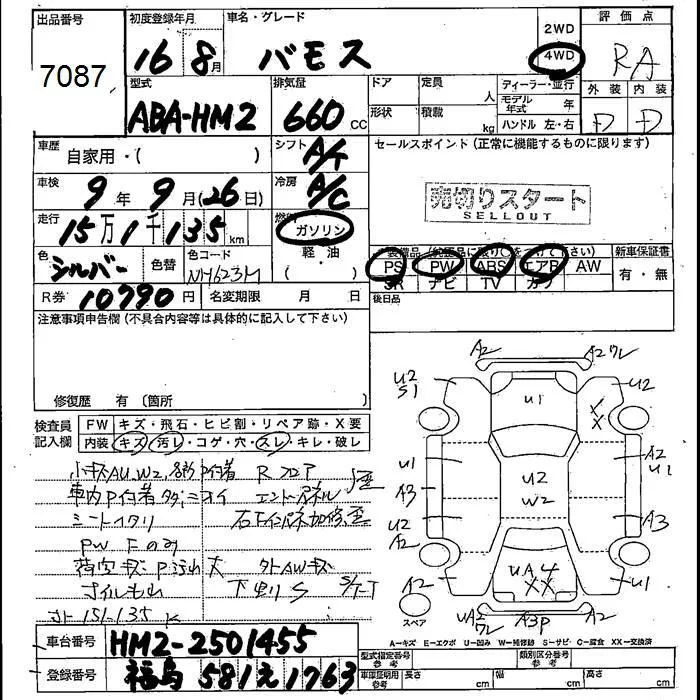 出品番号
7087
初度登録年月
16年 8月
車名・グレード
バモス
2WD
4WD
評価点
RA
型式
ABA-HM2
排気量
660 CC
ドア
形状
定員 人
積載 kg
ディーラー・並行
モデル年式 年
ハンドル 左・右
外装 内装
D D
車歴
自家用・( )
シフト
A/T
セールスポイント(正常に機能するものに限ります)
車検
9年 9月(26日)
冷房
A/C
売切りスタート
SELLOUT
走行
15万1千135km
燃料
ガソリン
軽・油
( )
色
シルバー
色替
色コード
NH623M
装備品
PS PW ABS エアB AW
SR ナビ TV カワ
新車保証書
有・無
R券 10790円
名変期限 月 日
後日品
注意事項申告欄(不具合内容等は具体的に記入して下さい)
修復歴 有(箇所 )
検査員
記入欄
FW キズ・飛石・ヒビ割・リペア跡・X要
内装 キズ・汚レ・コゲ・穴・スレ・キレ・破レ
小キズAU.W2.
Rフロア
車内
シートイタリ
PW Fのみ
荷室キズ
外AWキズ
下廻りS
オイルもれ
A2
A2ワレ
U2
S1
U1
U2
XX
U1
A2
U1
U2
W2
A3
A3
U2
A2
UA4
XX
U1
スペア
UA2
ワレ
A3P
A=キズ E=エクボ U=凹み W=補修跡 S=サビ C=腐食 XX=交換済
車台番号
HM2-2501455
登録番号
福島 581え1763
型式指定番号
参考
類別区分番号
参考
車庫証明用
参考
長さ cm
幅 cm
高さ cm